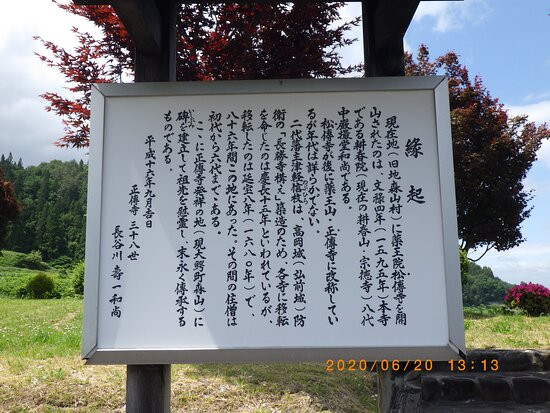 縁起
現在地(旧地森山村)に薬王院松傳寺を開
山されたのは、文禄四年(一五九五年)本寺
である耕春院(現在の耕春山・宗徳寺)八代
中巖授堂和尚である。
松傳寺が後に薬王山・正傳寺に改称してい
るが年代は詳らかでない。
二代藩主津軽信枚は、高岡城(弘前城)防
衛の「長勝寺構え」築造のため、各寺に移転
を命じたのは慶長十五年といわれているが、
移転したのは延宝八年(一六八〇年)で、
八十六年間この地にあった。その間の住僧は
初代から六代までである。
こゝに正傳寺発祥の地(現大鰐町森山)に
碑を建立して祖先を慰霊し、末永く傳承する
ものである。
平成十六年九月吉日
正傳寺 三十八世
長谷川 壽一和尚
2020/06/20 13:13